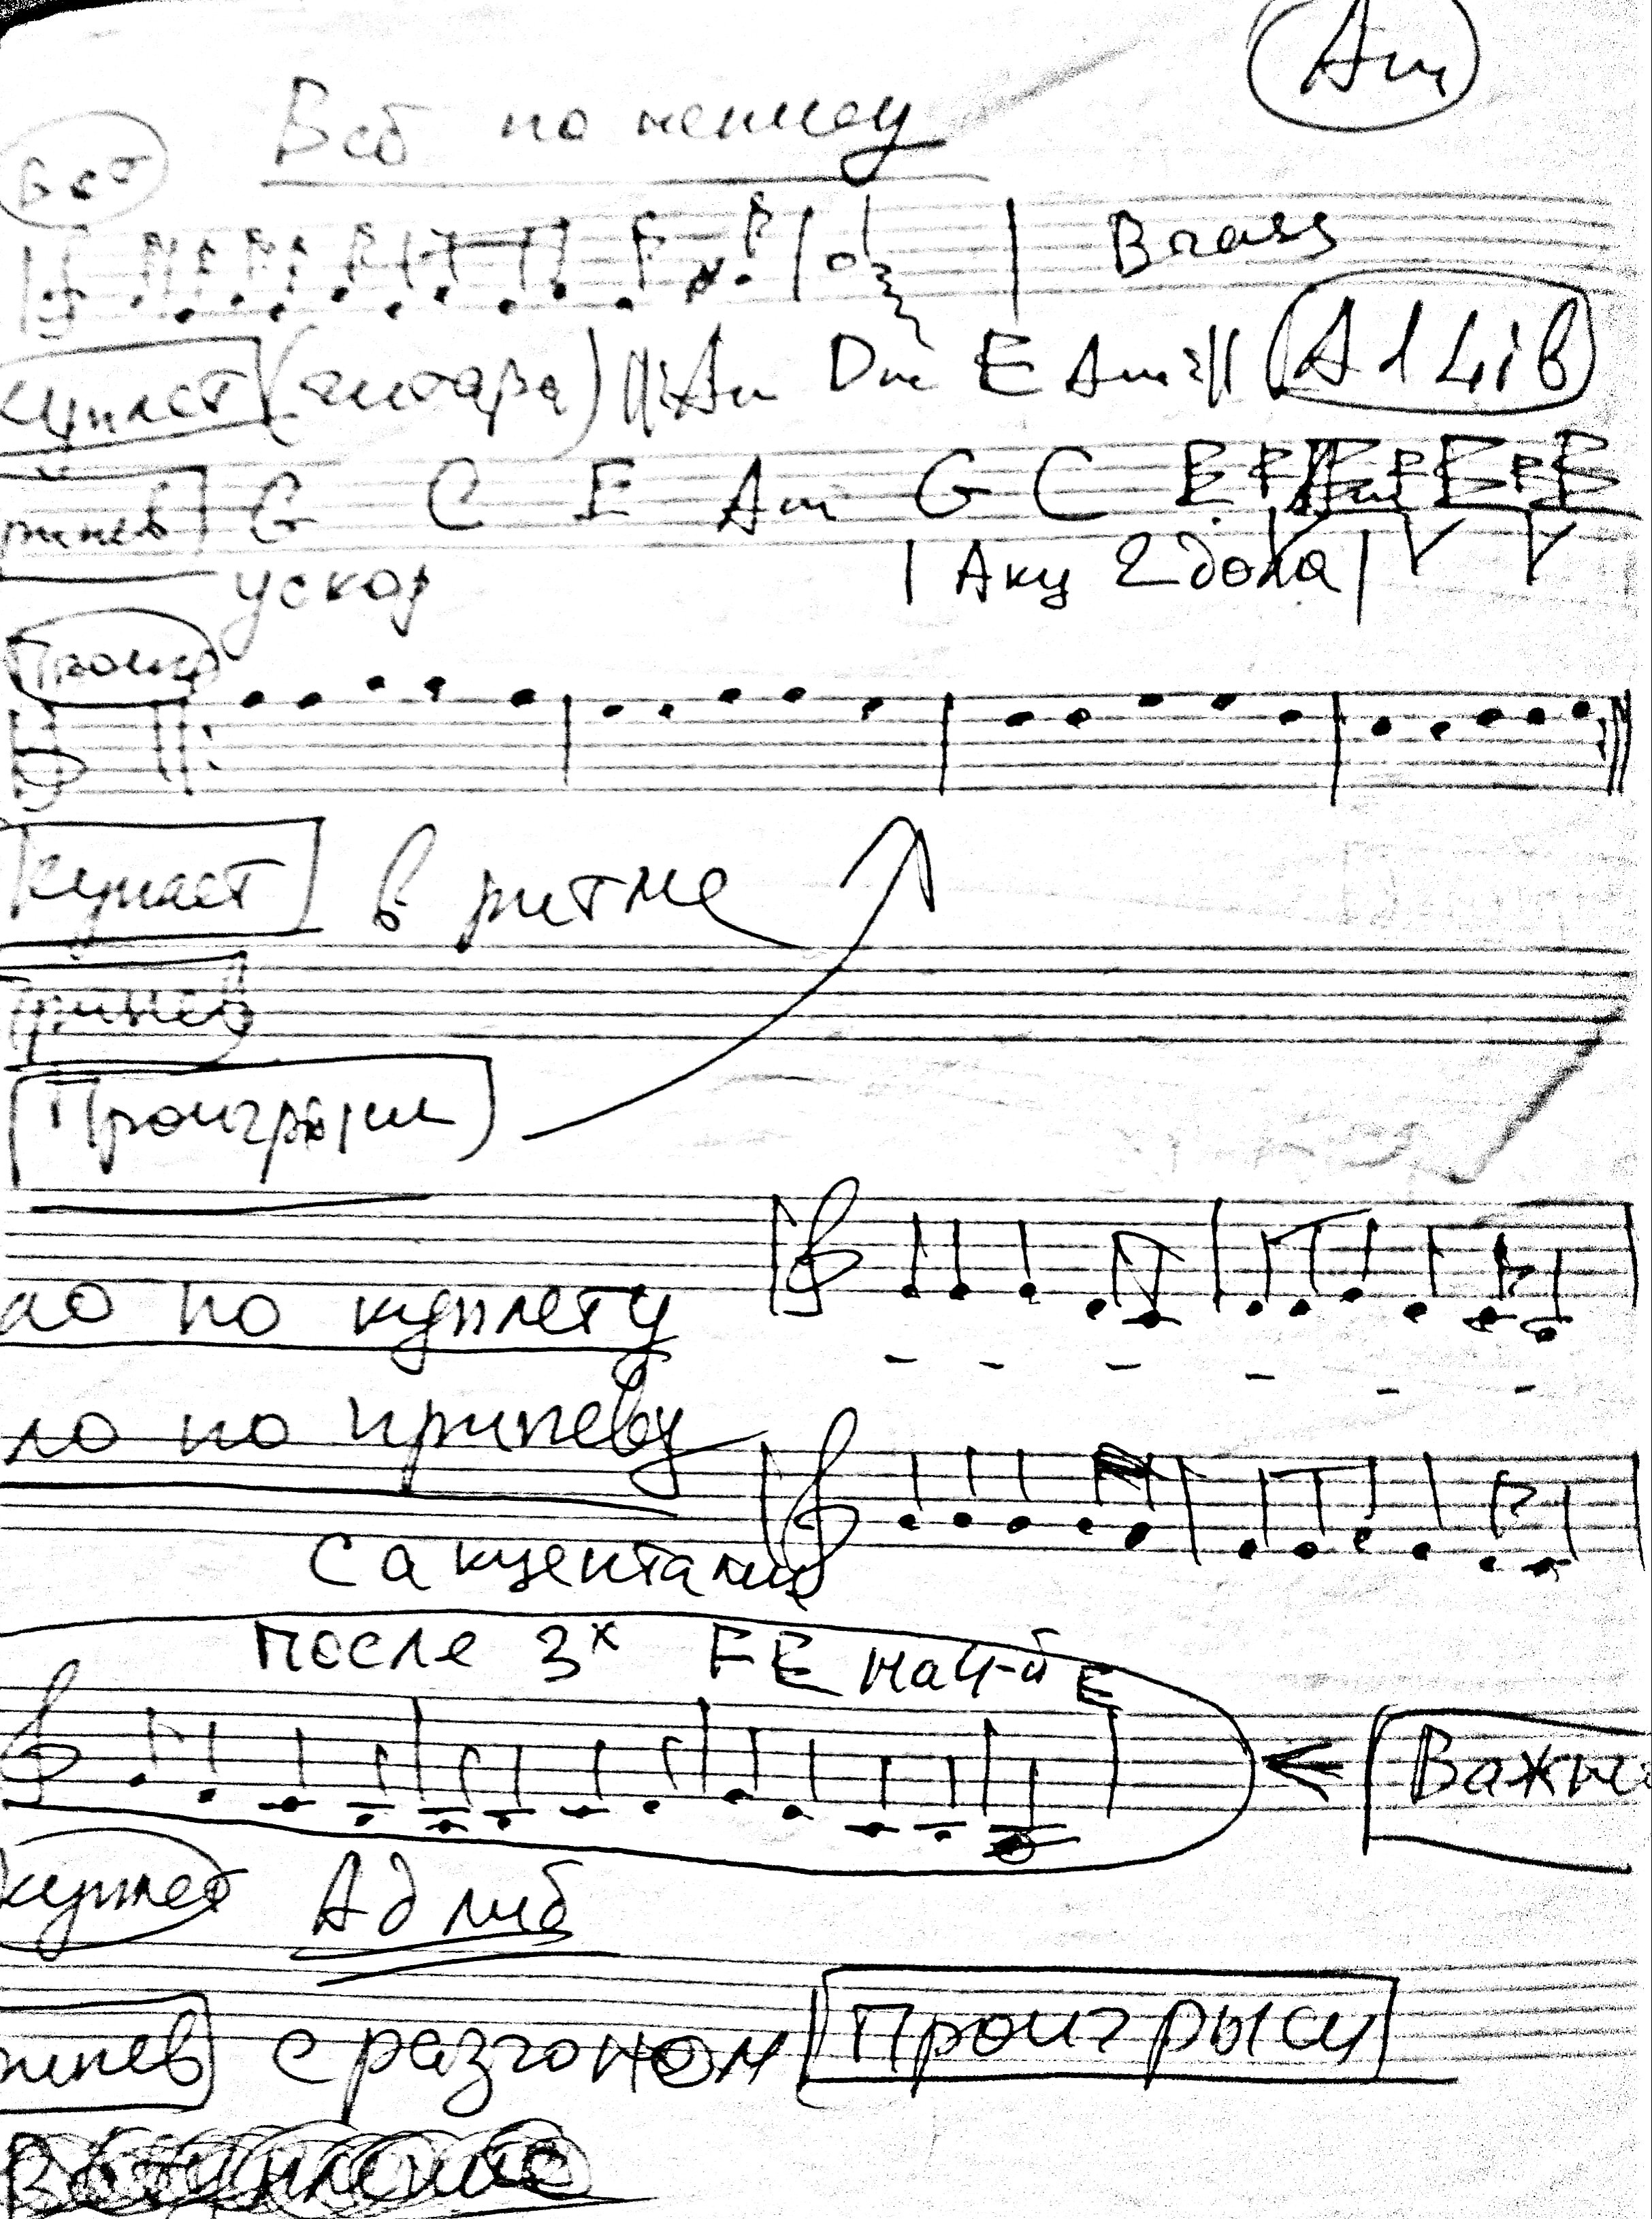 Am
Всё по ке
Вст
Brass
Куплет (гитара) ||: Am Dm E Am :|| Ad Lib
припев G C E Am G C E F
ускор | Акц 2 доля |
Проигр
Куплет в ритме
Припев
Проигрыш
ло по куплету
ло по припеву
с акцентами
после 3х FE нач-й E
Важн
куплет Ад либ
пипев с разгоном Проигрыш